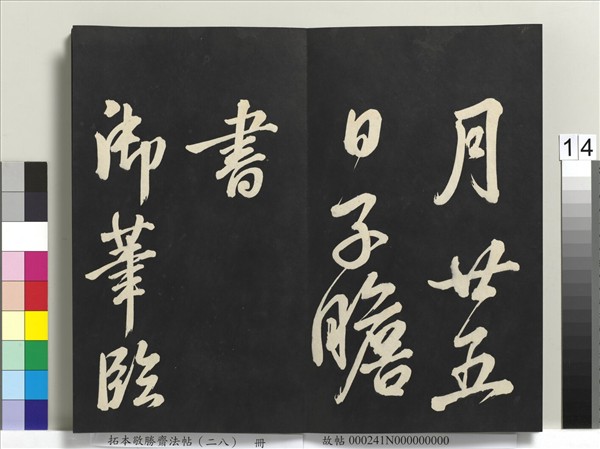 月廿五
日子瞻
書
御筆臨
14
拓本敬勝齋法帖(二八) 冊
故帖 000241N000000000